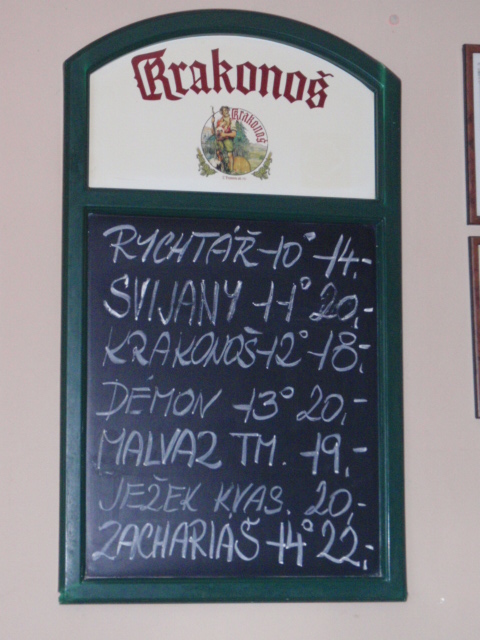 Krakonoš
Krakonoš
RYCHTÁŘ-10° 14.-
SVIJANY 11° 20,-
KRAKONOŠ-12° 18,-
DÉMON -13° 20,-
MALVAZ TM. -19,-
JEŽEK KVAS. 20,-
ZACHARIÁŠ 14° 22,-